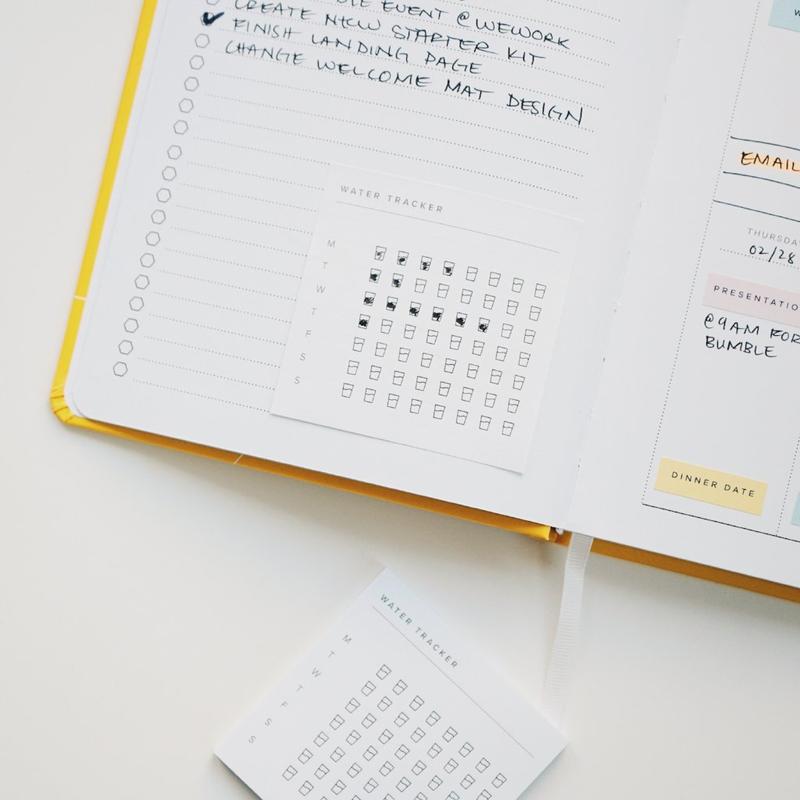 EVENT @WEWORK
CREATE NEW STARTER KIT
FINISH LANDING PAGE
CHANGE WELCOME MAT DESIGN
WATER TRACKER
M
T
W
T
F
S
S
EMAIL
THURSDA
02/28
PRESENTATIO
@9AM FOR
BUMBLE
DINNER DATE
WATER TRACKER
M
T
W
T
F
S
S